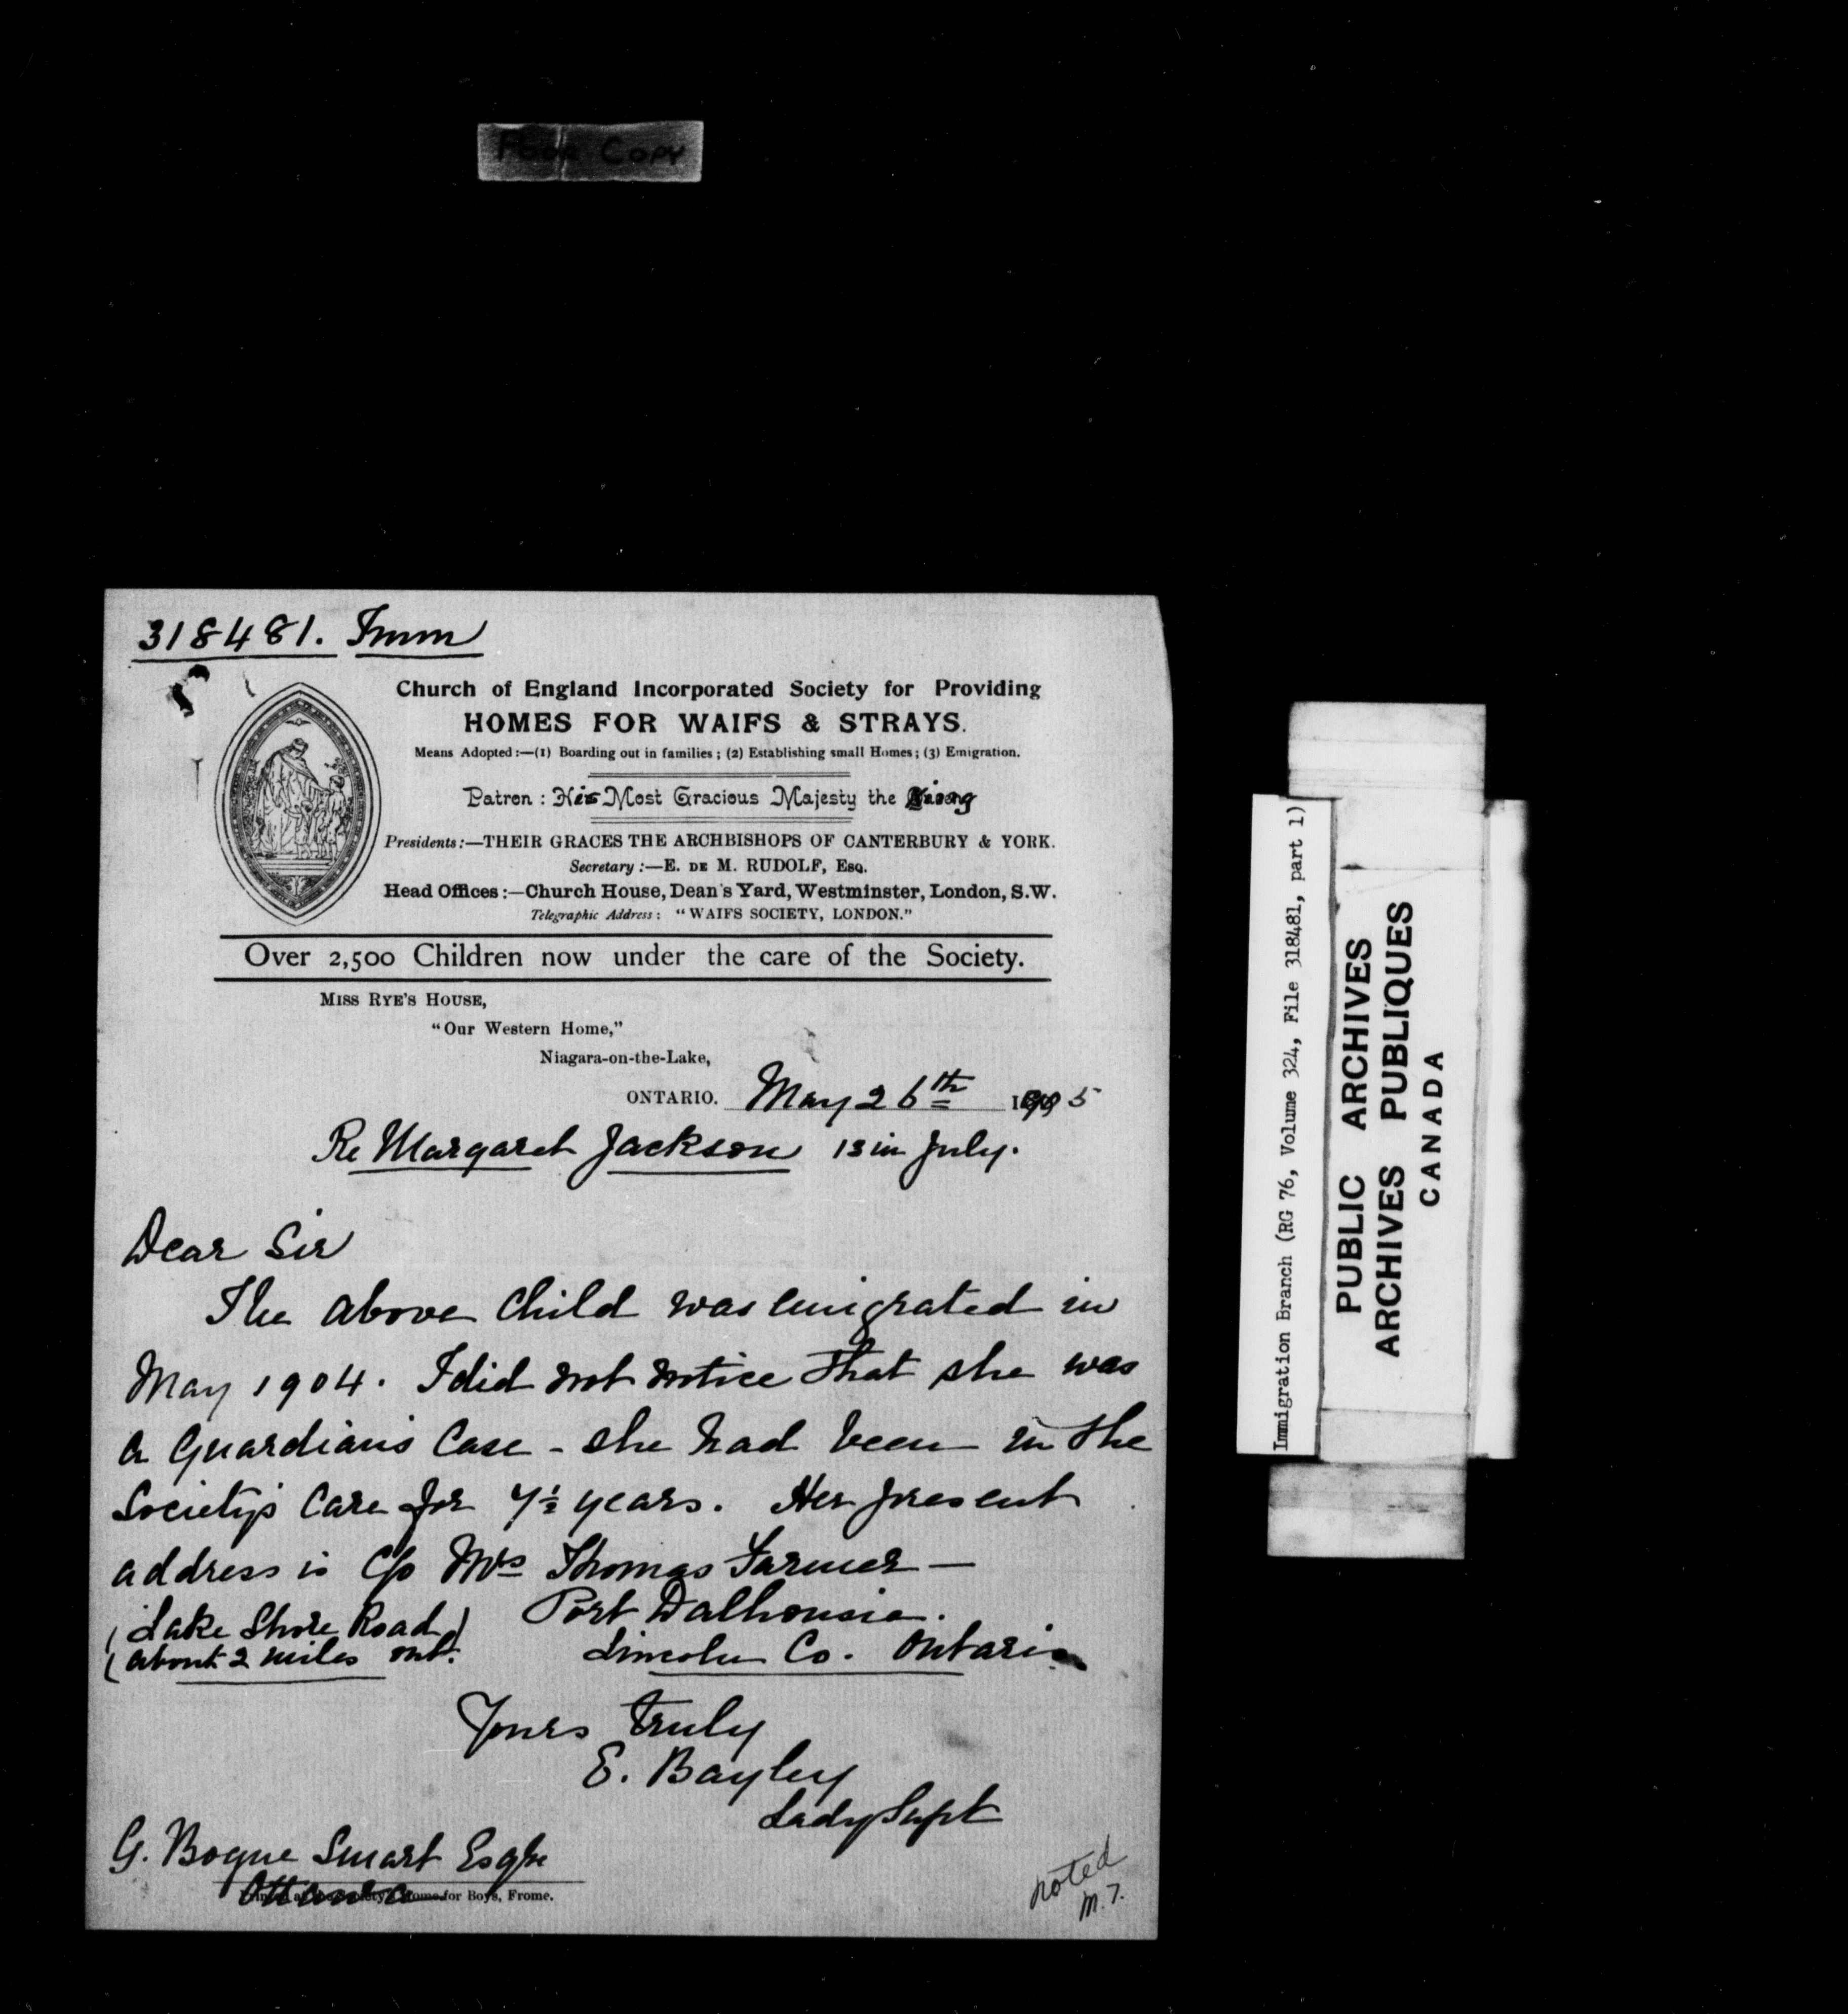 Poor Copy
318481. Imm
Church of England Incorporated Society for Providing
HOMES FOR WAIFS & STRAYS.
Means Adopted:—(1) Boarding out in families; (2) Establishing small Homes; (3) Emigration.
Patron: His Most Gracious Majesty the King
Presidents:—THEIR GRACES THE ARCHBISHOPS OF CANTERBURY & YORK.
Secretary:—E. DE M. RUDOLF, Esq.
Head Offices:—Church House, Dean's Yard, Westminster, London, S.W.
Telegraphic Address: "WAIFS SOCIETY, LONDON."
Over 2,500 Children now under the care of the Society.
Miss Rye's House,
"Our Western Home,"
Niagara-on-the-Lake,
ONTARIO. May 26th 1905
Re Margaret Jackson 13 in July.
Dear Sir
The above child was emigrated in
May 1904. I did not notice that she was
a Guardians Case - she had been in the
Society's Care for 7½ years. Her present
address is C/o Mrs Thomas Farmer —
(Lake Shore Road) Port Dalhousie.
(about 2 miles out. Lincoln Co. Ontario
Yours truly
E. Bayley
Lady Supt
G. Bogue Smart Esqre
Ottawa
Printed at the Society's Home for Boys, Frome.
noted
M. 7.
Immigration Branch (RG 76, Volume 324, File 318481, part 1)
PUBLIC ARCHIVES
ARCHIVES PUBLIQUES
CANADA